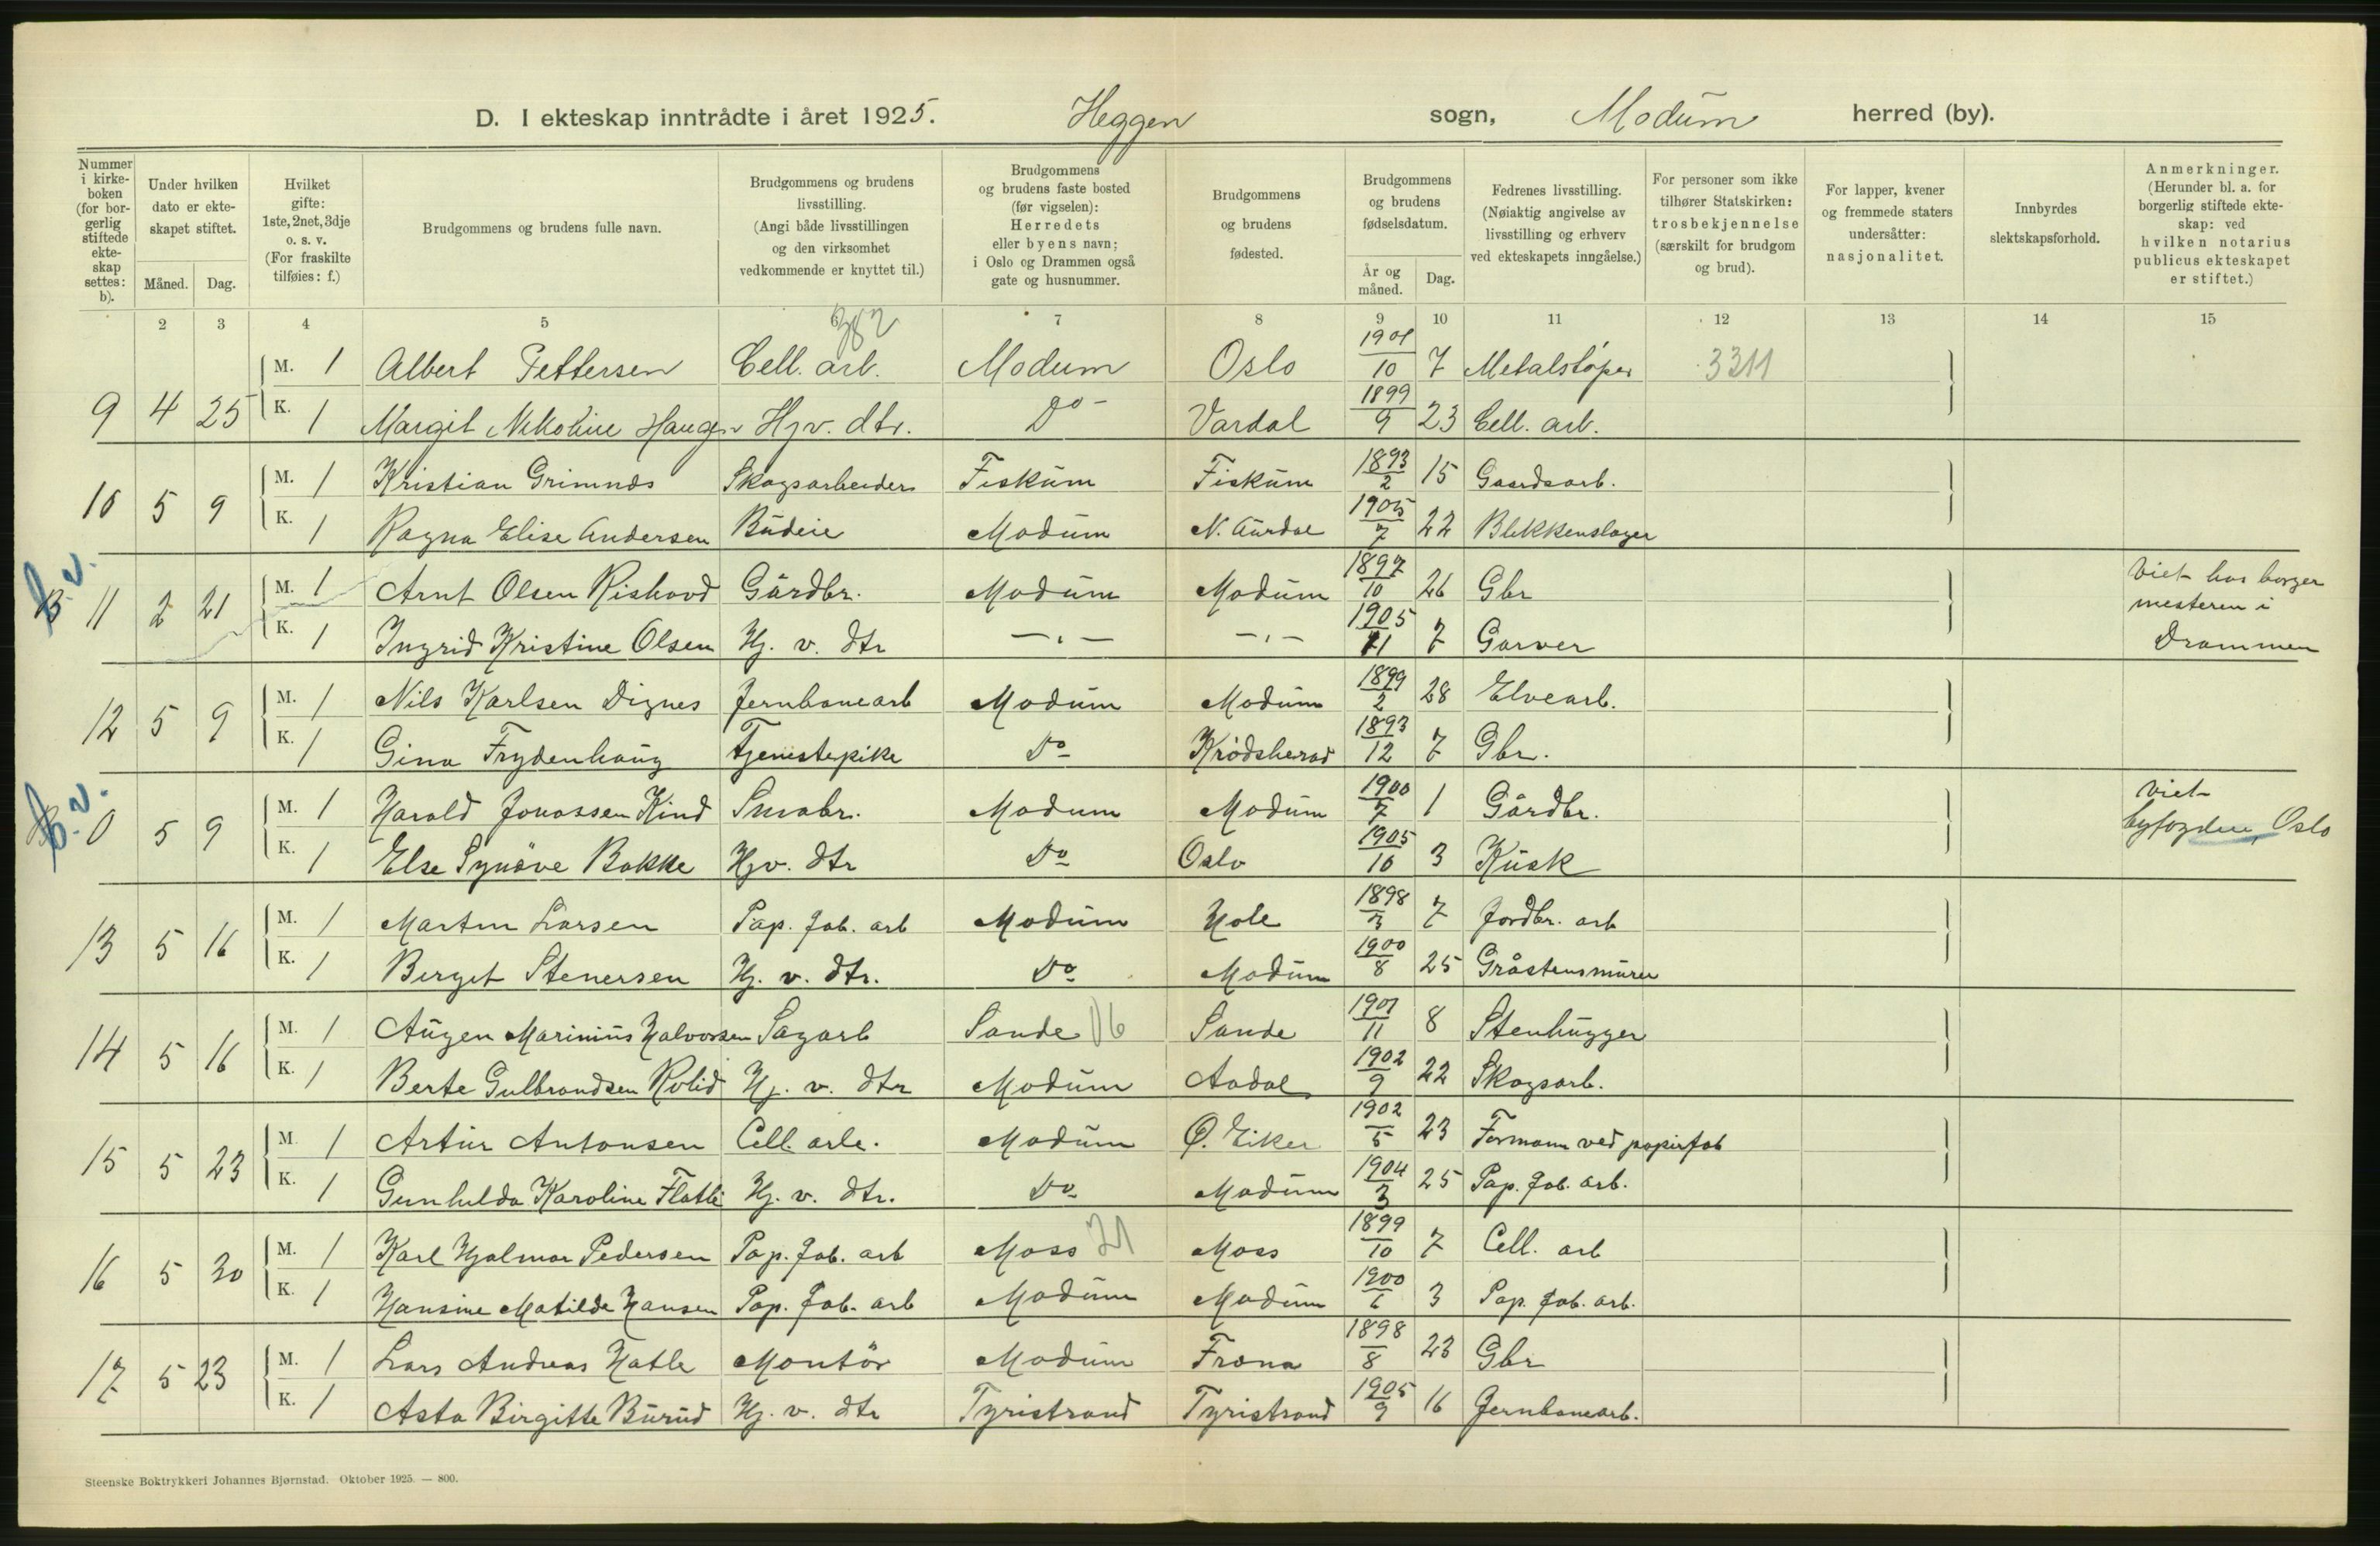 D. I ekteskap inntrådte i året 1925. Heggen sogn, Modum herred (by).
Nummer i kirkeboken (for borgerlig stiftede ekteskap settes: b).
Under hvilken dato er ekteskapet stiftet.
Måned. Dag.
Hvilket gifte: 1ste, 2net, 3dje o. s. v. (For fraskilte tilføies: f.)
Brudgommens og brudens fulle navn.
Brudgommens og brudens livsstilling. (Angi både livsstillingen og den virksomhet vedkommende er knyttet til.)
Brudgommens og brudens faste bosted (før vigselen): Herredets eller byens navn; i Oslo og Drammen også gate og husnummer.
Brudgommens og brudens fødested.
Brudgommens og brudens fødselsdatum.
År og måned. Dag.
Fedrenes livsstilling. (Nøiaktig angivelse av livsstilling og erhverv ved ekteskapets inngåelse.)
For personer som ikke tilhører Statskirken: trosbekjennelse (særskilt for brudgom og brud).
For lapper, kvener og fremmede staters undersåtter: nasjonalitet.
Innbyrdes slektskapsforhold.
Anmerkninger. (Herunder bl. a. for borgerlig stiftede ekteskap: ved hvilken notarius publicus ekteskapet er stiftet.)
2 3 4 5 7 8 9 10 11 12 13 14 15
382
9 4 25 M. 1 Albert Pettersen Cell. arb. Modum Oslo 1901/10 7 Metalstøper 3211
K. 1 Margit Nikoline Haugen Hjv. dtr. Do - Vardal 1899/9 23 Cell. arb.
10 5 9 M. 1 Kristian Grimnds Skogsarbeider Fiskum Fiskum 1893/2 15 Gaardsarb.
K. 1 Ragna Elise Andersen Budeie Modum N. Aurdal 1905/7 22 Blekkenslager
B. v. 11 2 21 M. 1 Arnt Olsen Rishovd Gårdbr. Modum Modum 1897/10 26 Gbr Viet hos borger
mesteren i
K. 1 Ingrid Kristine Olsen Hj. v. dtr — „ — — „ — 1905/11 7 Garver Drammen
12 5 9 M. 1 Nils Karlsen Dignes Jernbanearb Modum Modum 1899/2 28 Elvearb.
K. 1 Gina Frydenhaug Tjenstepike Do Krødsherad 1893/12 7 Gbr.
B. v. 0 5 9 M. 1 Harald Jonassen Kind Smabr. Modum Modum 1900/7 1 Gårdbr. Viet
byfogden, Oslo
K. 1 Else Synøve Bakke Hjv. dtr Do Oslo 1905/10 3 Kusk
13 5 16 M. 1 Martin Larsen Pap. fab. arb Modum Hole 1898/3 7 Jordbr. arb
K. 1 Berget Stenersen Hj. v. dtr. Do Modum 1900/8 25 Gråstensmurer
14 5 16 M. 1 Augen Marinius Halvorsen Sagarb Sande 16 Sande 1901/11 8 Stenhugger
K. 1 Berte Gulbrandsen Rolid Hj. v. dtr Modum Aadal 1902/9 22 Skogsarb.
15 5 23 M. 1 Artur Antonsen Cell. arb. Modum Ø. Eiker 1902/5 23 Formann ved papirfab
K. 1 Gunhilda Karoline Flatli Hj. v. dtr. Do Modum 1904/3 25 Pap. fab. arb.
16 5 30 M. 1 Karl Hjalmar Pedersen Pap. fab. arb Moss 21 Moss 1899/10 7 Cell. arb
K. 1 Hansine Matilde Hansen Pap. fab. arb Modum Modum 1900/6 3 Pap. fab. arb.
17 5 23 M. 1 Lars Andreas Hatle Montör Modum Fræna 1898/8 23 Gbr
K. 1 Asta Birgitte Burud Hj. v. dtr Tyristrand Tyristrand 1905/9 16 Jernbanearb.
Steenske Boktrykkeri Johannes Bjørnstad. Oktober 1925. — 800.